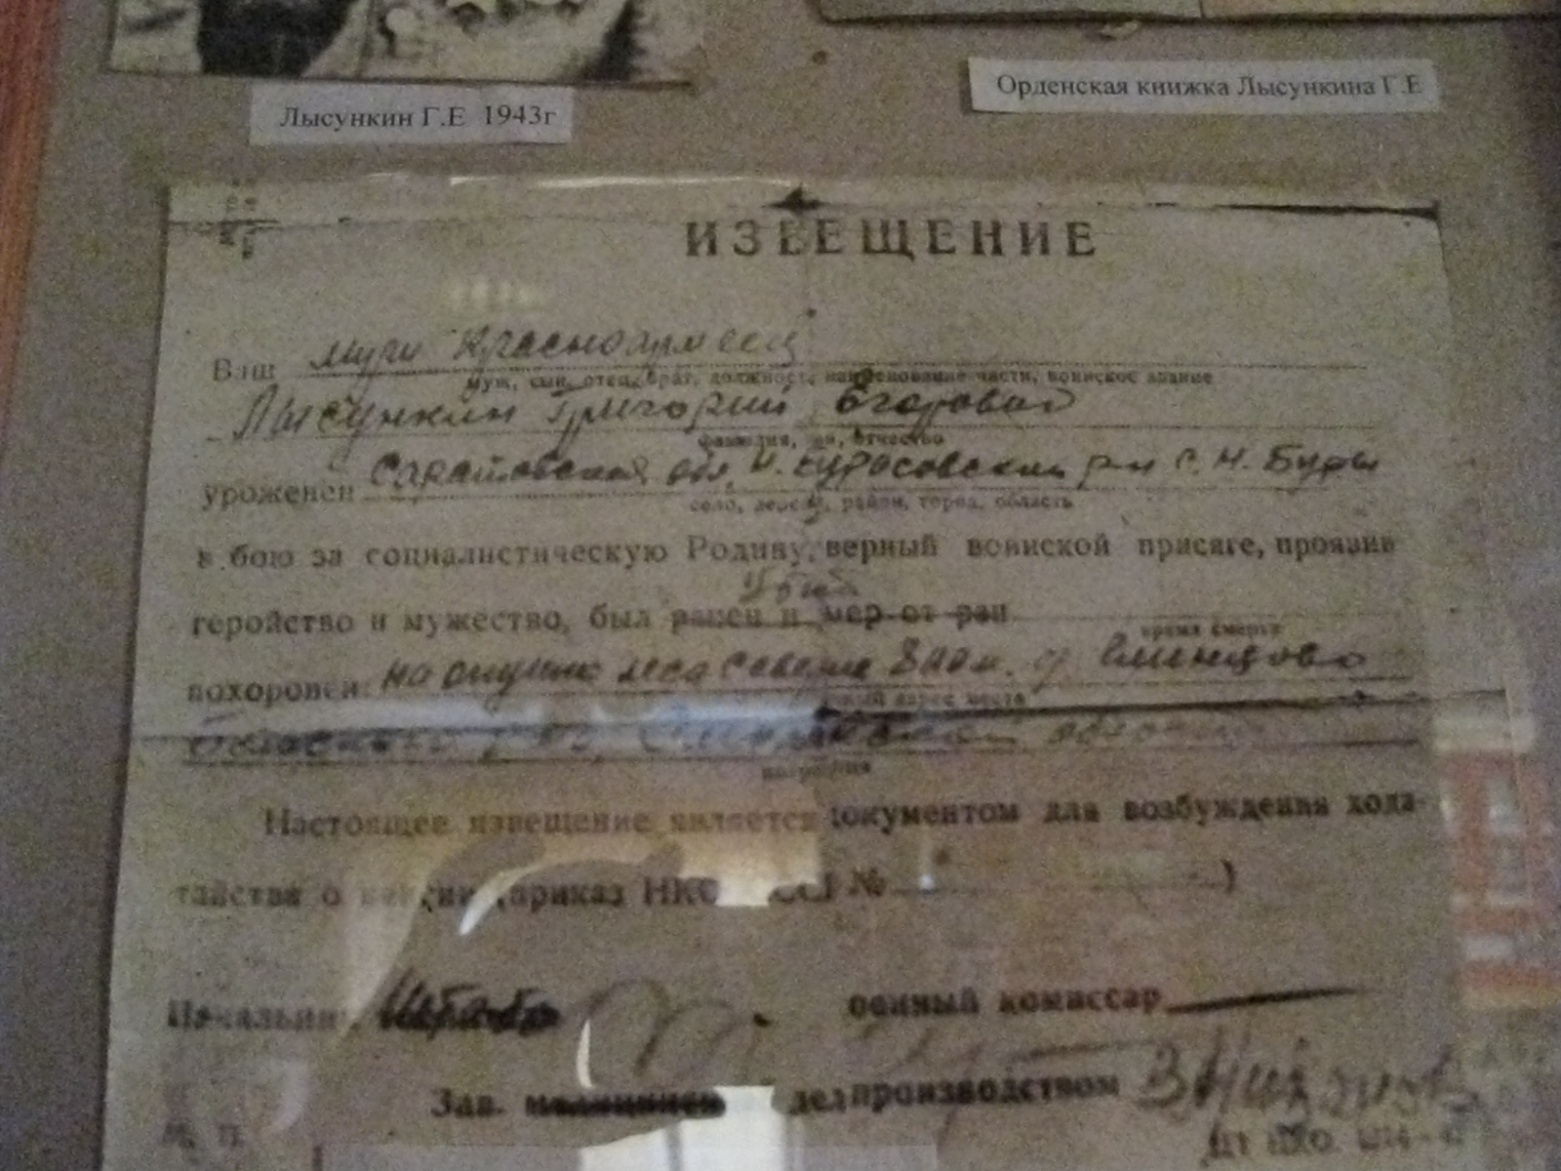 Лысункин Г.Е 1943г
Орденская книжка Лысункина Г.Е
ИЗВЕЩЕНИЕ
Ваш муж красноармеец
муж, сын, отец, брат, должность, наименование части, воинское звание
Лысункин Григорий Егорович
фамилия, имя, отчество
уроженец Саратовская обл, Н. Бурасовский р-н с. Н. Бурасы
село, деревня, район, город, область
в бою за социалистическую Родину, верный воинской присяге, проявив
убит
геройство и мужество, был ранен и умер от ран
время смерти
похоронен: на опушке леса севернее 800 м. д.
погребения
Настоящее извещение является документом для возбуждения хода-
тайства о пенсии (приказ НКО СССР №)
Начальник Штаба военный комиссар
Зав. делпроизводством
М. П.